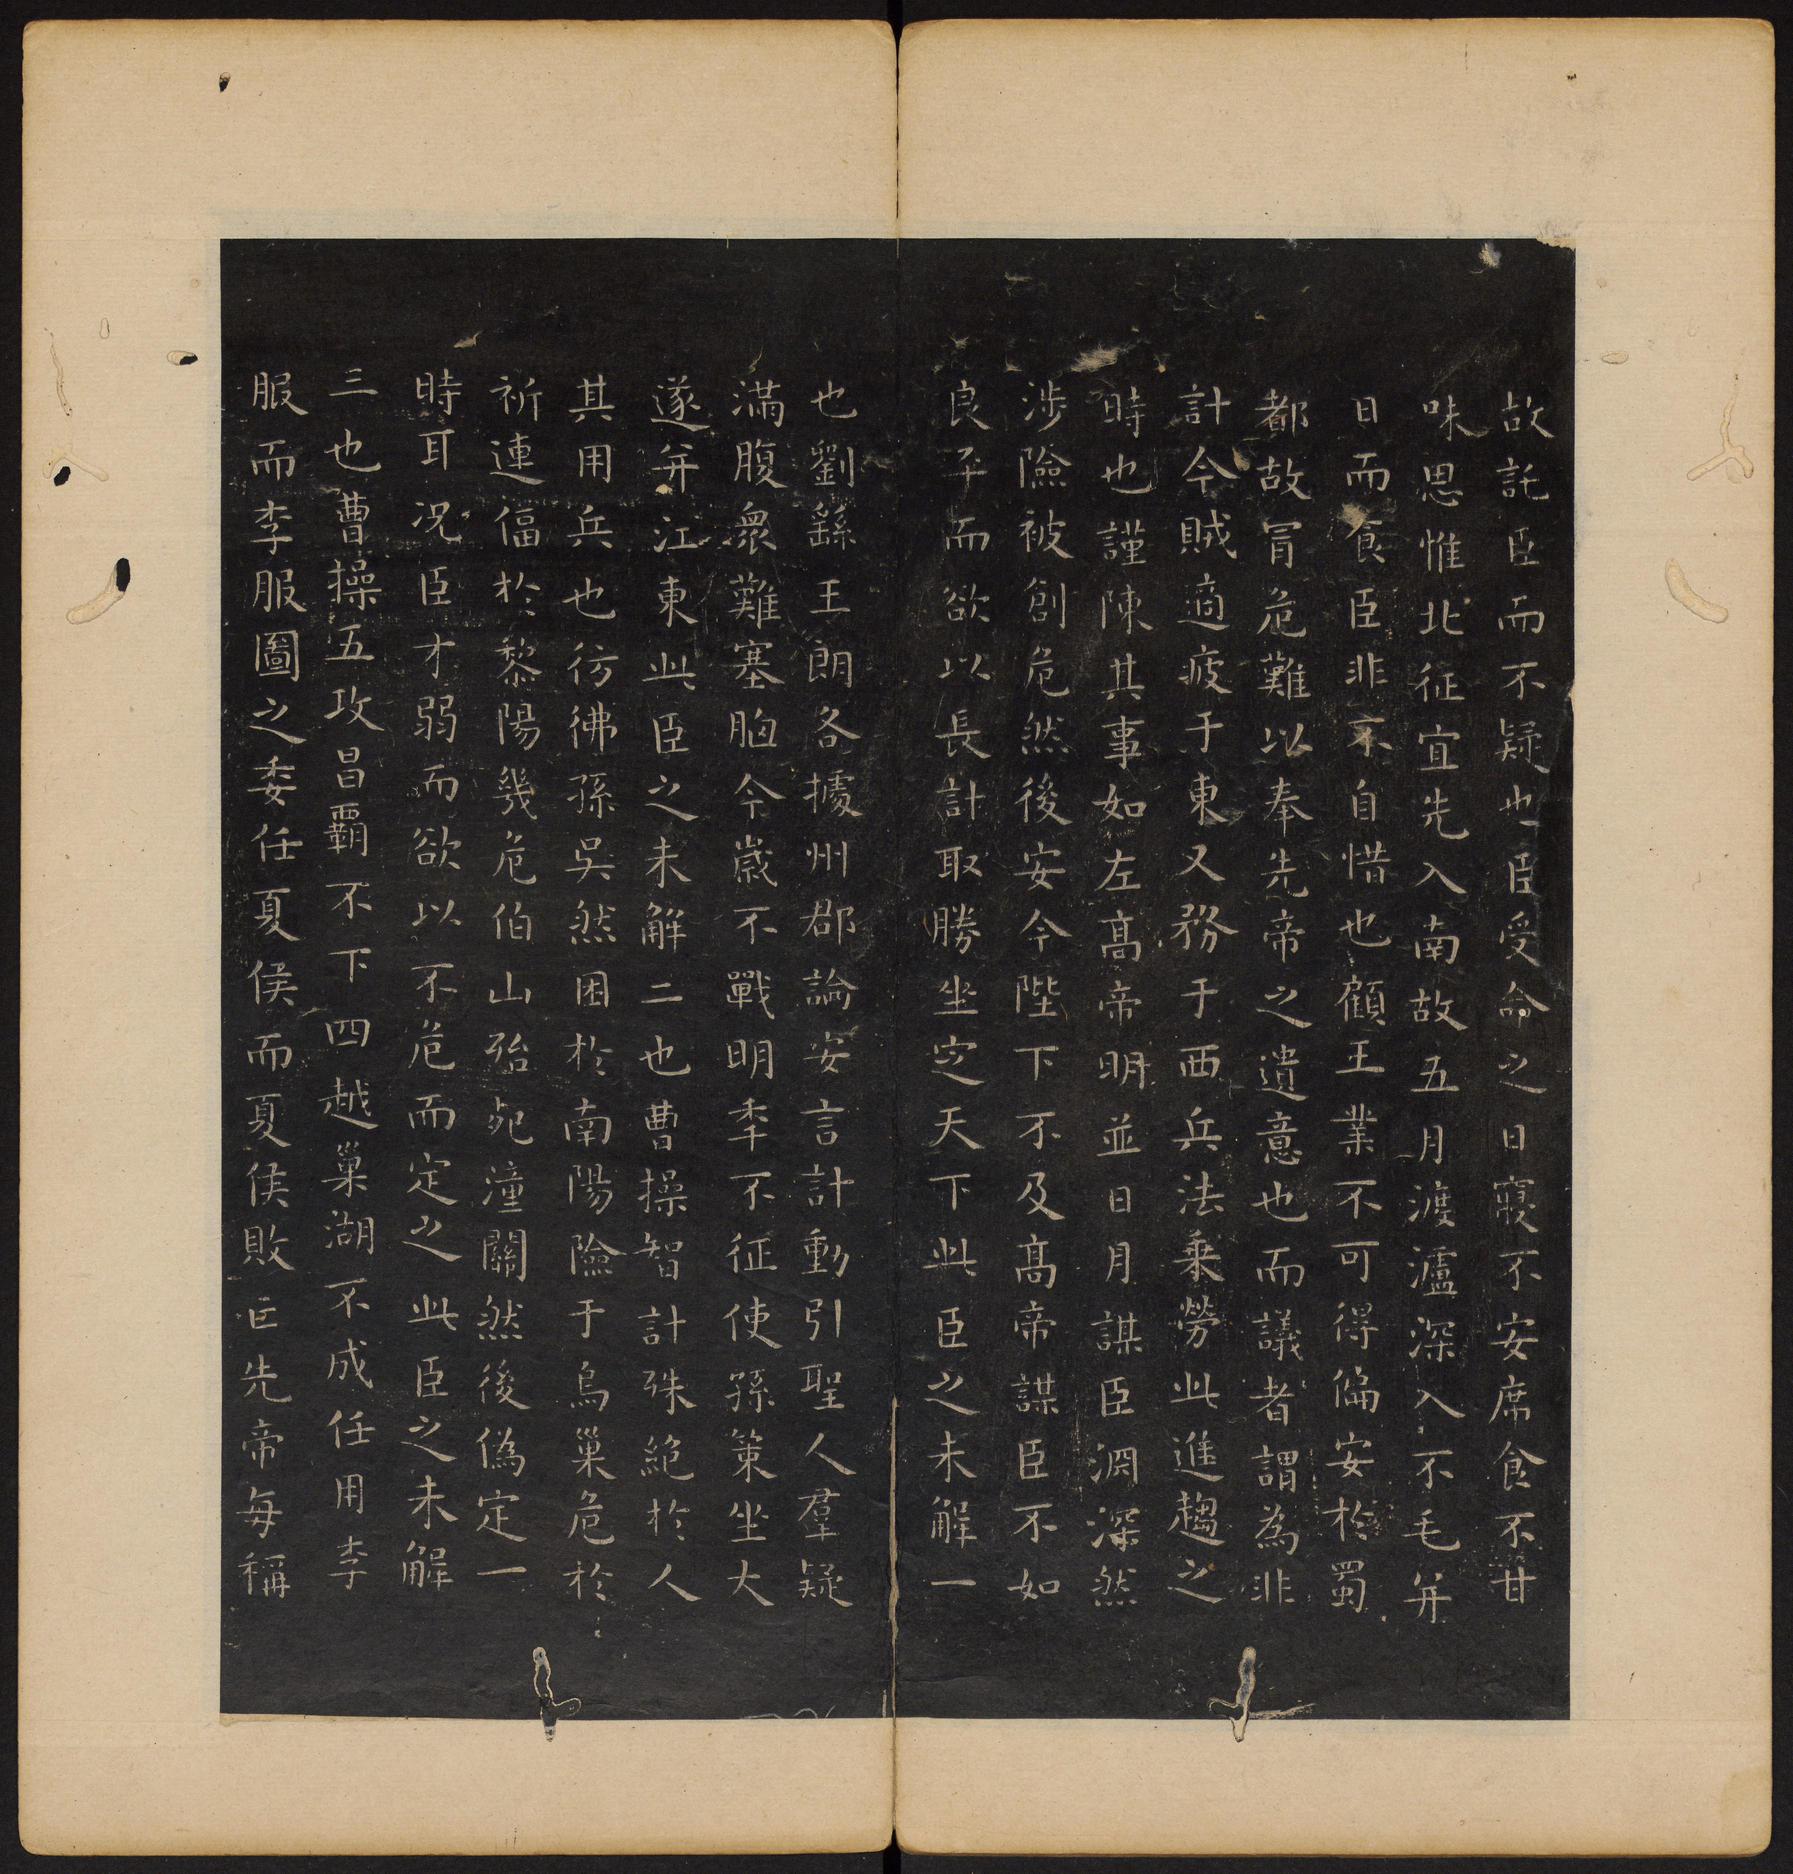 故託臣而不疑也臣受命之日寢不安席食不甘
味思惟北征宜先入南故五月渡瀘深入不毛并
日而食臣非不自惜也顧王業不可得偏安於蜀
都故冐危難以奉先帝之遺意也而議者謂為非
計今賊適疲于東又務于西兵法乗勞此進趨之
時也謹陳其事如左髙帝明並日月謀臣淵深然
涉險被創危然後安今陛下不及髙帝謀臣不如
良平而欲以長計取勝坐定天下此臣之未解一
也劉繇王朗各據州郡論安言計動引聖人羣疑
滿腹衆難塞胸今歲不戰明秊不征使孫策坐大
遂并江東此臣之未解二也曹操智計殊絶於人
其用兵也彷彿孫吳然困於南陽險于烏巢危於
祈連偪於黎陽幾危伯山殆死潼關然後偽定一
時耳况臣才弱而欲以不危而定之此臣之未解
三也曹操五攻昌霸不下四越巢湖不成任用李
服而李服圖之委任夏侯而夏侯敗亡先帝每稱